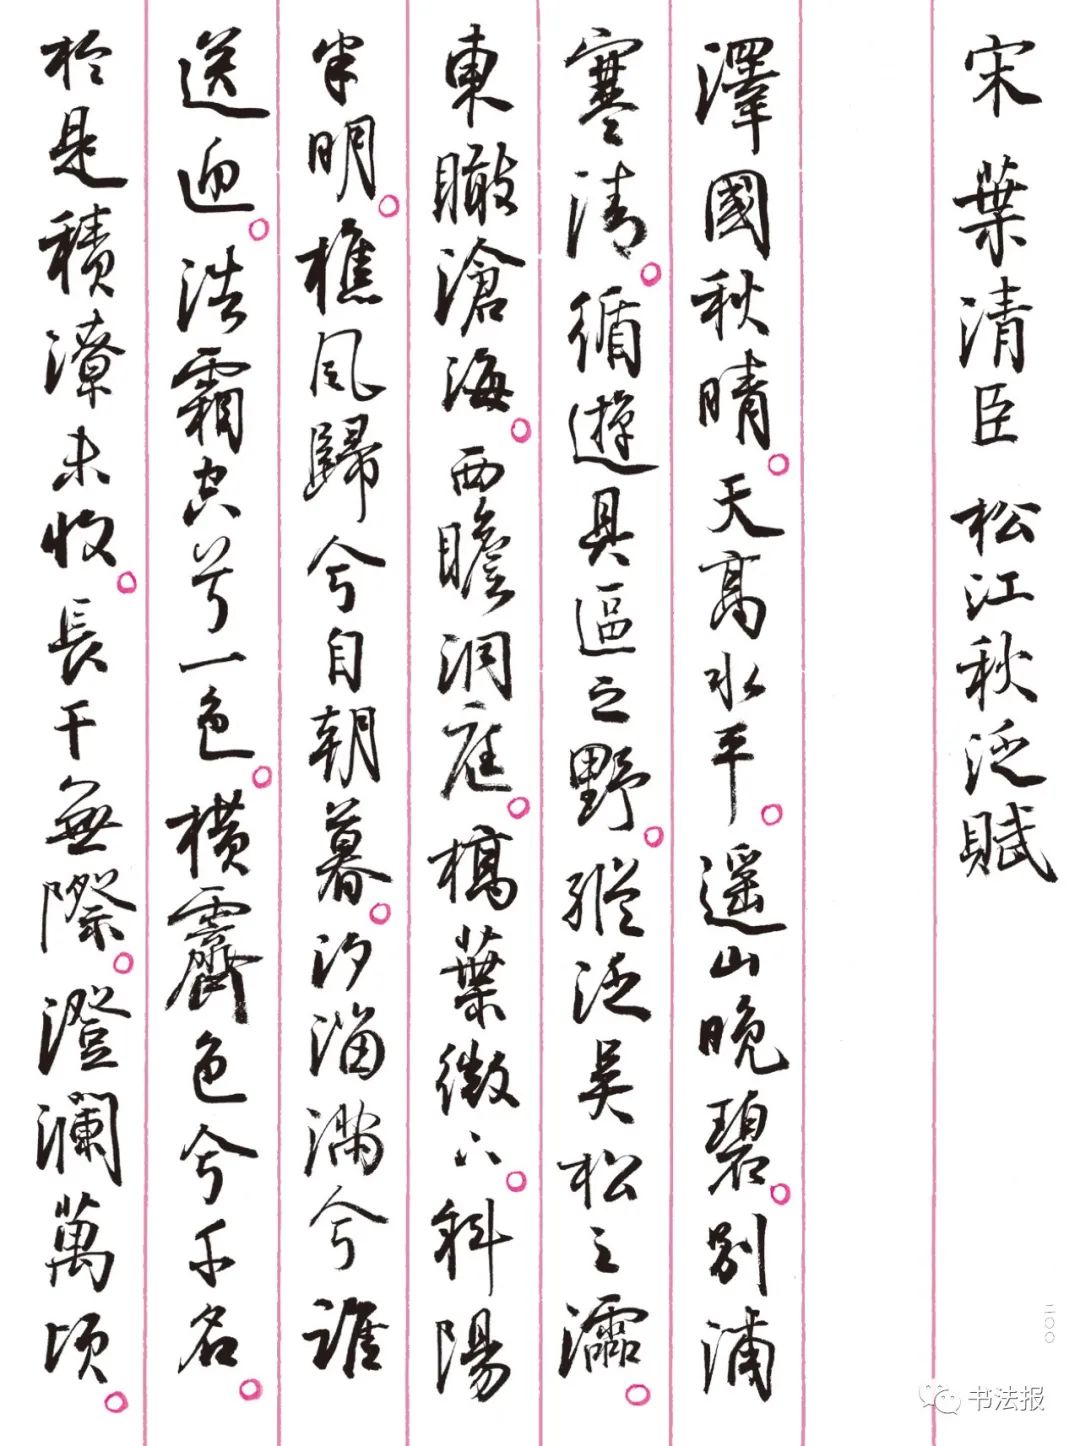 宋 葉清臣 松江秋泛賦
澤國秋晴。天高水平。遥山晚碧。別浦
寒清。循遊具區之野。縱泛吳松之。
東瞰滄海。西瞻洞庭。槁葉微下。斜陽
半明。樵風歸兮自朝暮。汐溜滿兮誰
送迎。浩霜空兮一色。横霽色兮千名。
於是積潦未收。長干無際。澄瀾萬頃。
二〇〇
书法报